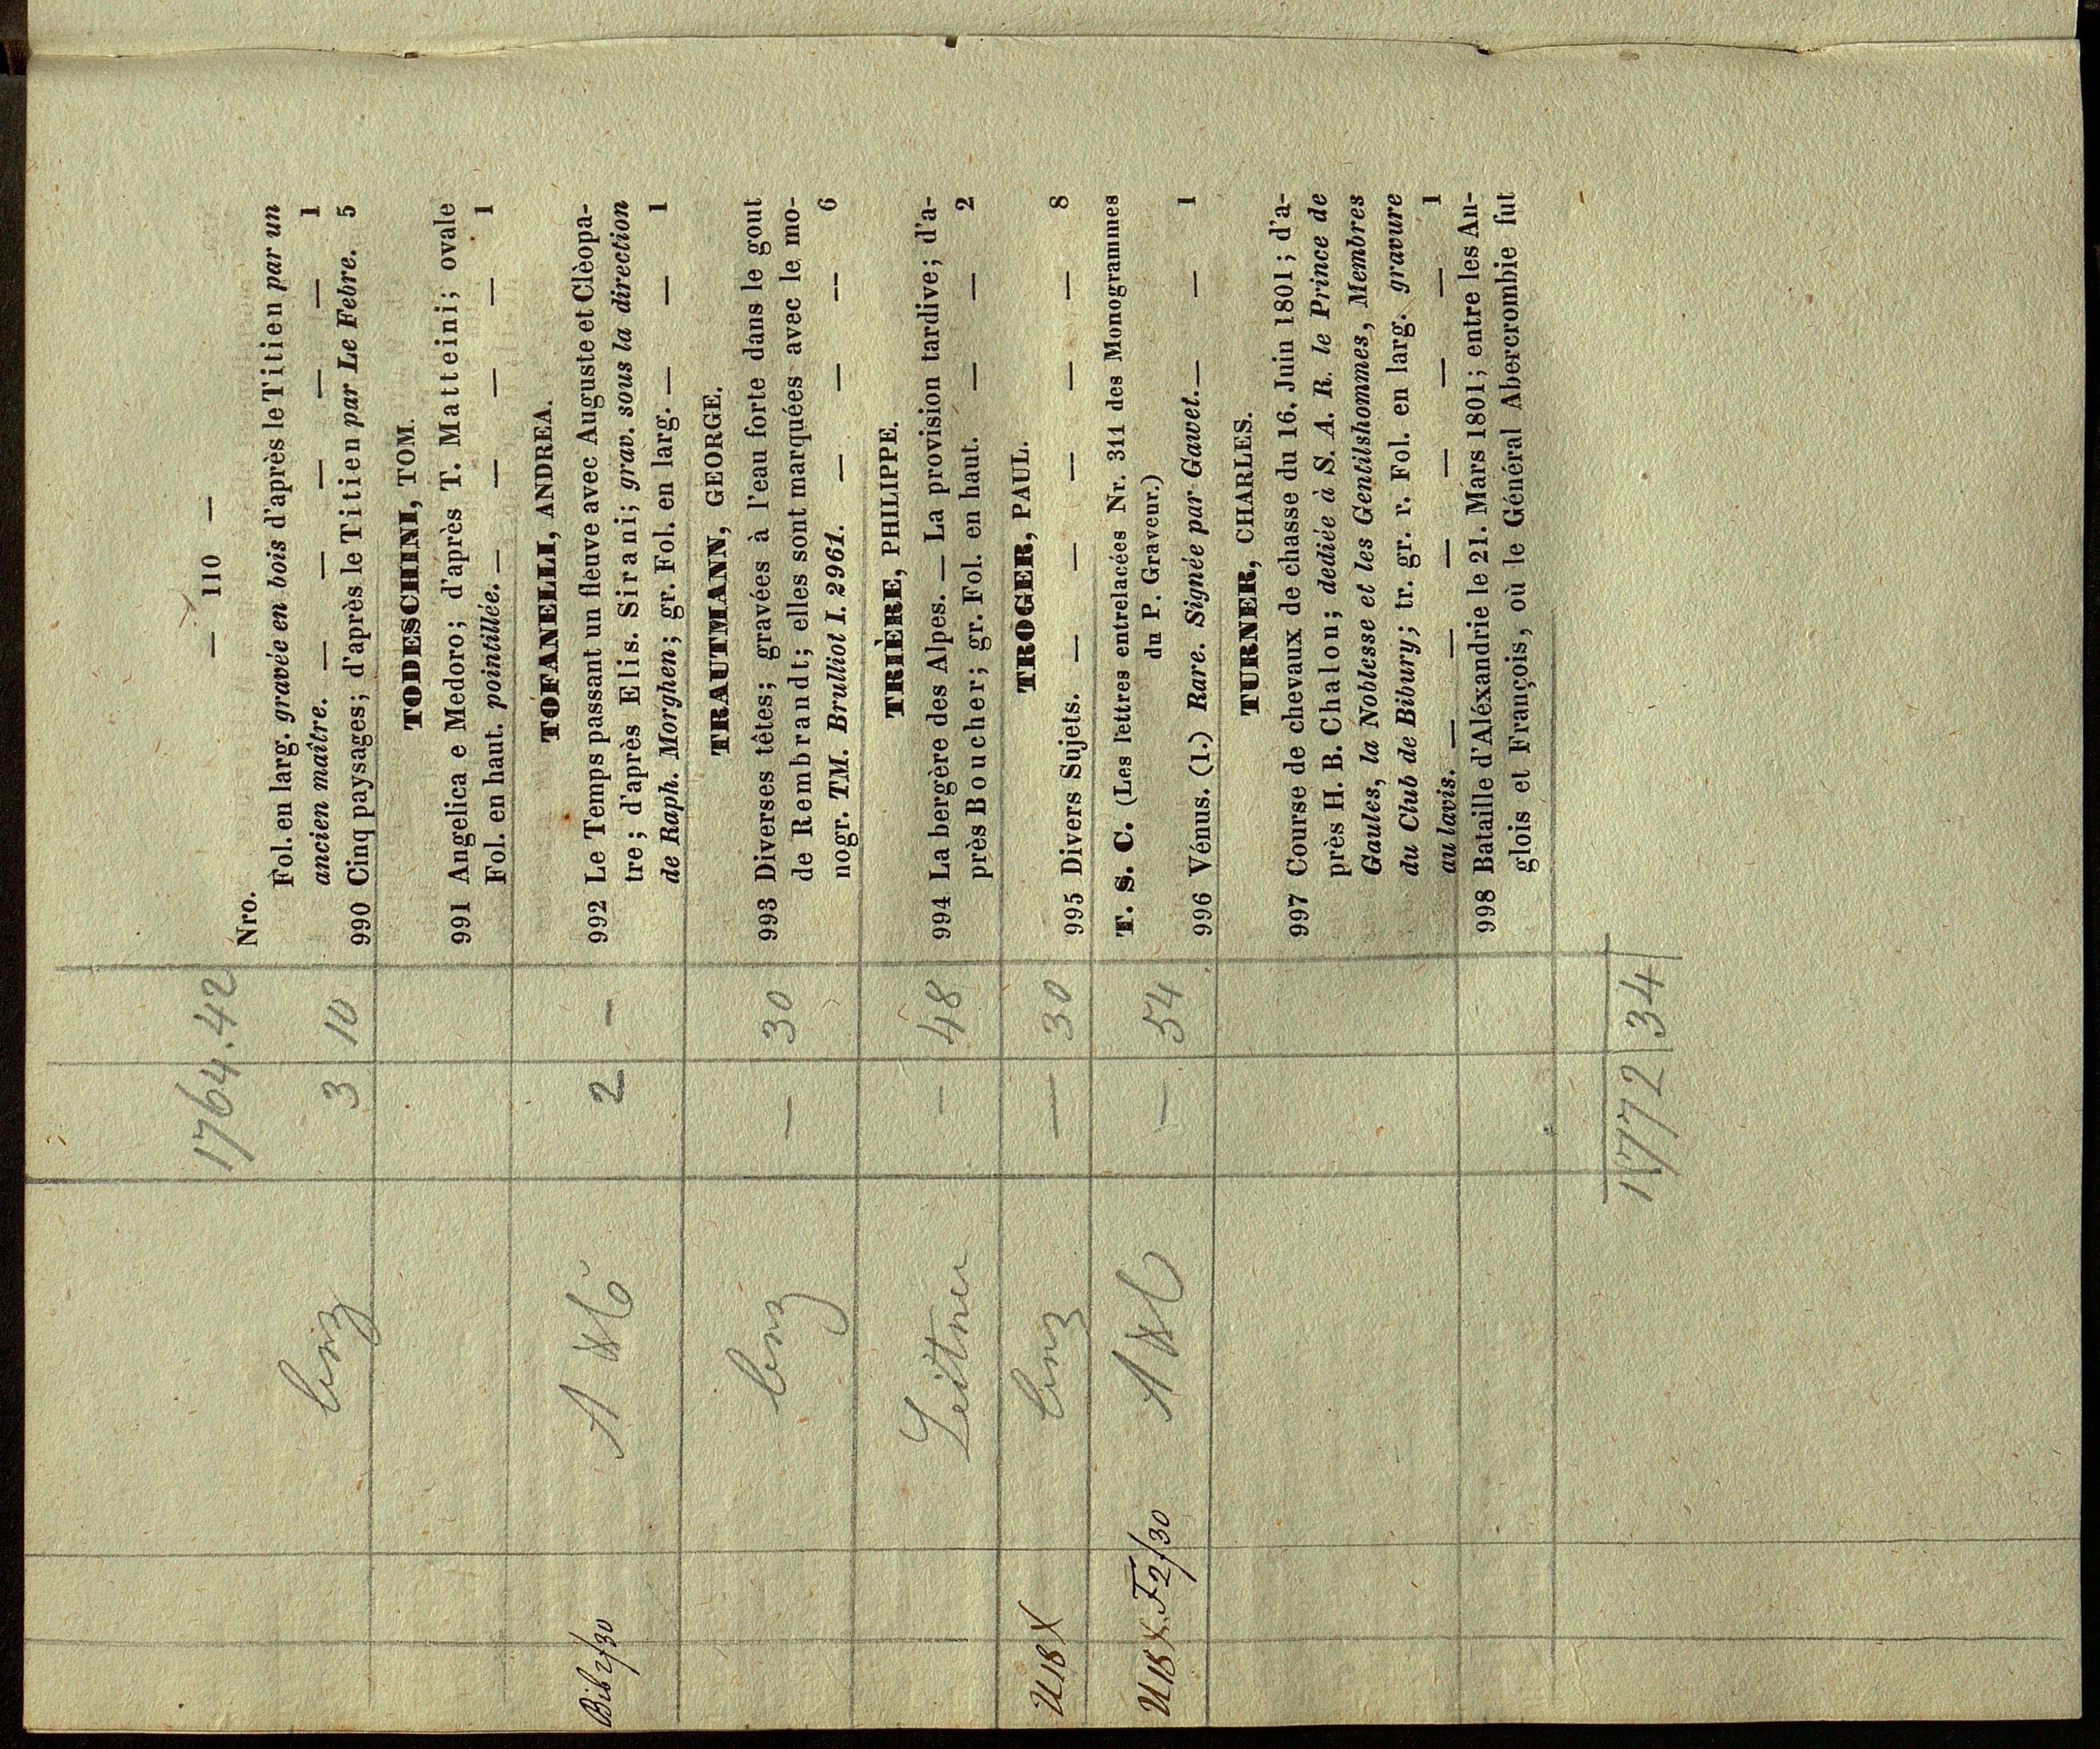 — 110 —
1764.42
Nro.
Fol. en larg. gravée en bois d'après le Titien par un
ancien maître. — — — — — 1
3 10
990 Cinq paysages; d'après le Titien par Le Febre. 5
TODESCHINI, TOM.
991 Angelica e Medoro; d'après T. Matteini; ovale
Fol. en haut. pointillée. — — — — 1
TOFANELLI, ANDREA.
Bib 2/30
2 —
992 Le Temps passant un fleuve avec Auguste et Clèopa-
tre; d'après Elis. Sirani; grav. sous la direction
de Raph. Morghen; gr. Fol. en larg. — — 1
TRAUTMANN, GEORGE.
— 30
993 Diverses têtes; gravées à l'eau forte dans le gout
de Rembrandt; elles sont marquées avec le mo-
nogr. TM. Brulliot I. 2961. — — -- 6
TRIÈRE, PHILIPPE.
Leitner — 48
994 La bergère des Alpes. — La provision tardive; d'a-
près Boucher; gr. Fol. en haut. — — 2
TROGER, PAUL.
— 30
995 Divers Sujets. — — — — — 8
T. S. C. (Les lettres entrelacées Nr. 311 des Monogrammes
du P. Graveur.)
F 2/30
— 54
996 Vénus. (1.) Rare. Signée par Gawet. — — 1
TURNER, CHARLES.
997 Course de chevaux de chasse du 16. Juin 1801; d'a-
près H. B. Chalon; dediée à S. A. R. le Prince de
Gaules, la Noblesse et les Gentilshommes, Membres
du Club de Bibury; tr. gr. r. Fol. en larg. gravure
au lavis. — — — — — — 1
998 Bataille d'Aléxandrie le 21. Mars 1801; entre les An-
glois et François, où le Général Abercrombie fut
1772 34